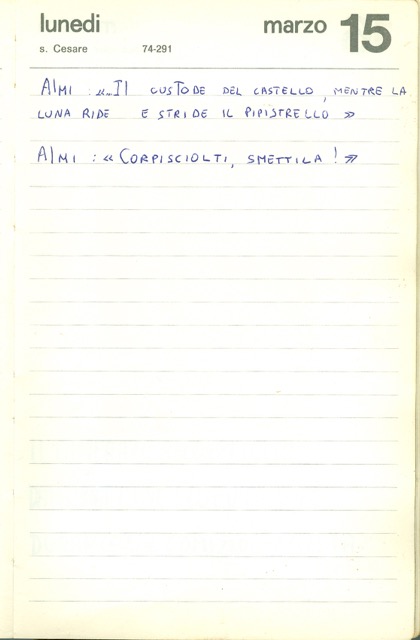 lunedì marzo 15
s. Cesare 74-291
Almi : «...Il CUSTODE DEL CASTELLO, MENTRE LA
LUNA RIDE E STRIDE IL PIPISTRELLO »
Almi : « CORPISCIOLTI, SMETTILA ! »